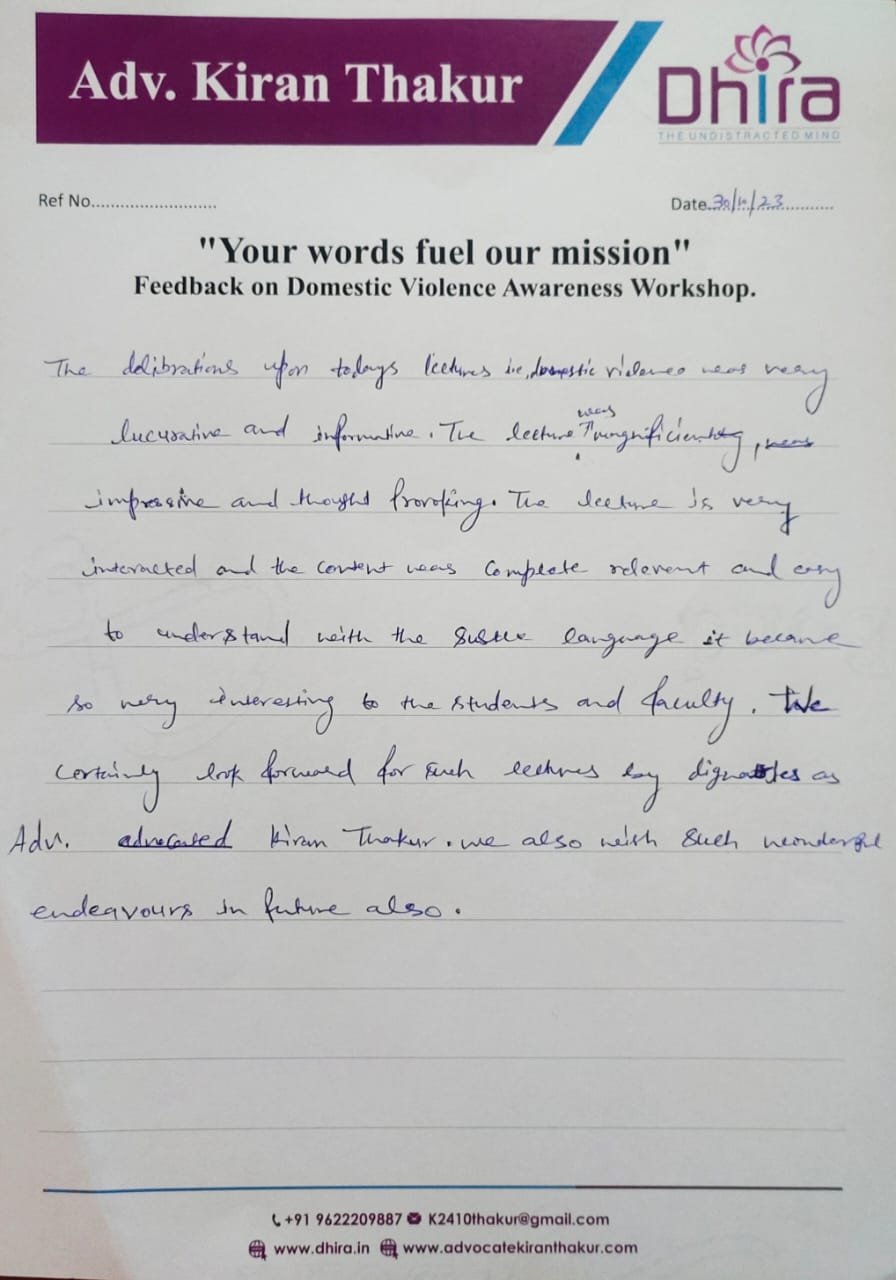 Adv. Kiran Thakur
Dhira
THE UNDISTRACTED MIND
Ref No..........................
Date..30/10/23.............
"Your words fuel our mission"
Feedback on Domestic Violence Awareness Workshop.
The delibrations upon todays lectures i.e, domestic violence was very
lucurative and informative. The lecture was magnificient,
impressive and thought Provoking. The lecture is very
interacted and the content was complete relevent and easy
to understand with the language it became
so very interesting to the students and faculty. We
certainly look forward for such lectures by as
Adv. Kiran Thakur. we also wish such wonderful
endeavours in future also.
+91 9622209887 K2410thakur@gmail.com
www.dhira.in www.advocatekiranthakur.com